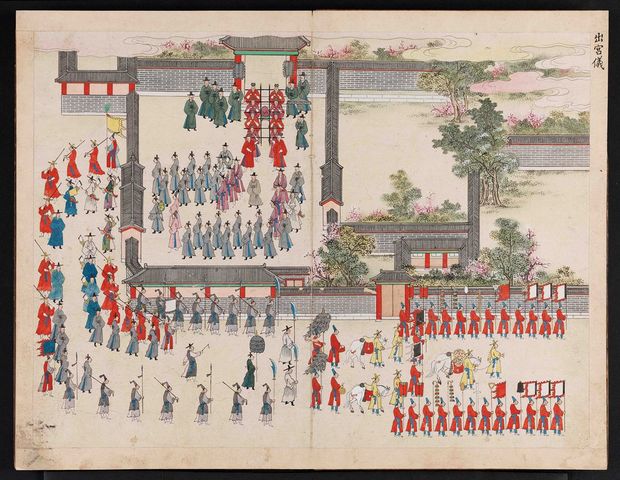 出宮儀